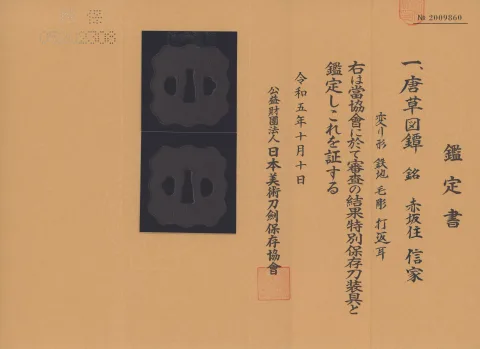 № 2009860
鑑定書
一、唐草図鐔 銘 赤坂住信家
変り形 鉄地 毛彫 打返耳
右は當協會に於て審査の結果特別保存刀装具と
鑑定しこれを証する
令和五年十月十日
公益財團法人 日本美術刀劍保存協會